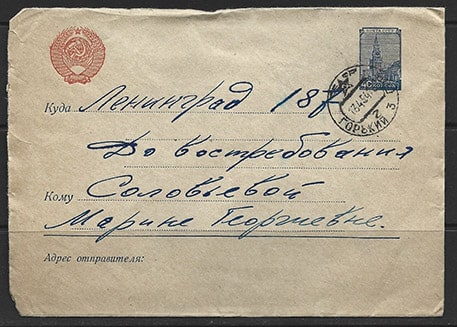 ПОЧТА СССР
40 КОП
ГОРЬКИЙ 3
Куда Ленинград 18
До востребования
Кому Соловьевой
Марине Георгиевне.
Адрес отправителя: